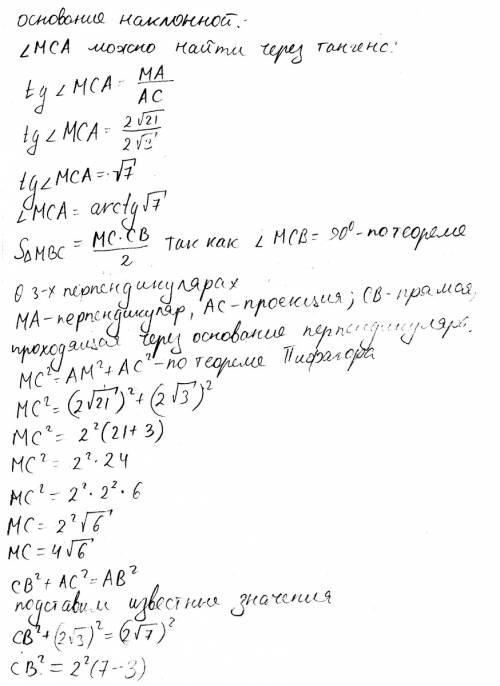 основание наклонной.
∠MCA можно найти через тангенс:
tg∠MCA = MA/AC
tg∠MCA = 2√21/2√3
tg∠MCA = √7
∠MCA = arctg√7
S∆MBC = MC·CB/2 так как ∠MCB = 90° - по теореме
о 3-х перпендикулярах
MA-перпендикуляр, AC-проекция; CB-прямая,
проходящая через основание перпендикуляра.
MC² = AM² + AC² - по теореме Пифагора
MC² = (2√21)² + (2√3)²
MC² = 2²(21+3)
MC² = 2²·24
MC² = 2²·2²·6
MC = 2²√6
MC = 4√6
CB² + AC² = AB²
подставим известные значения
CB² + (2√3)² = (2√7)²
CB² = 2²(7-3)